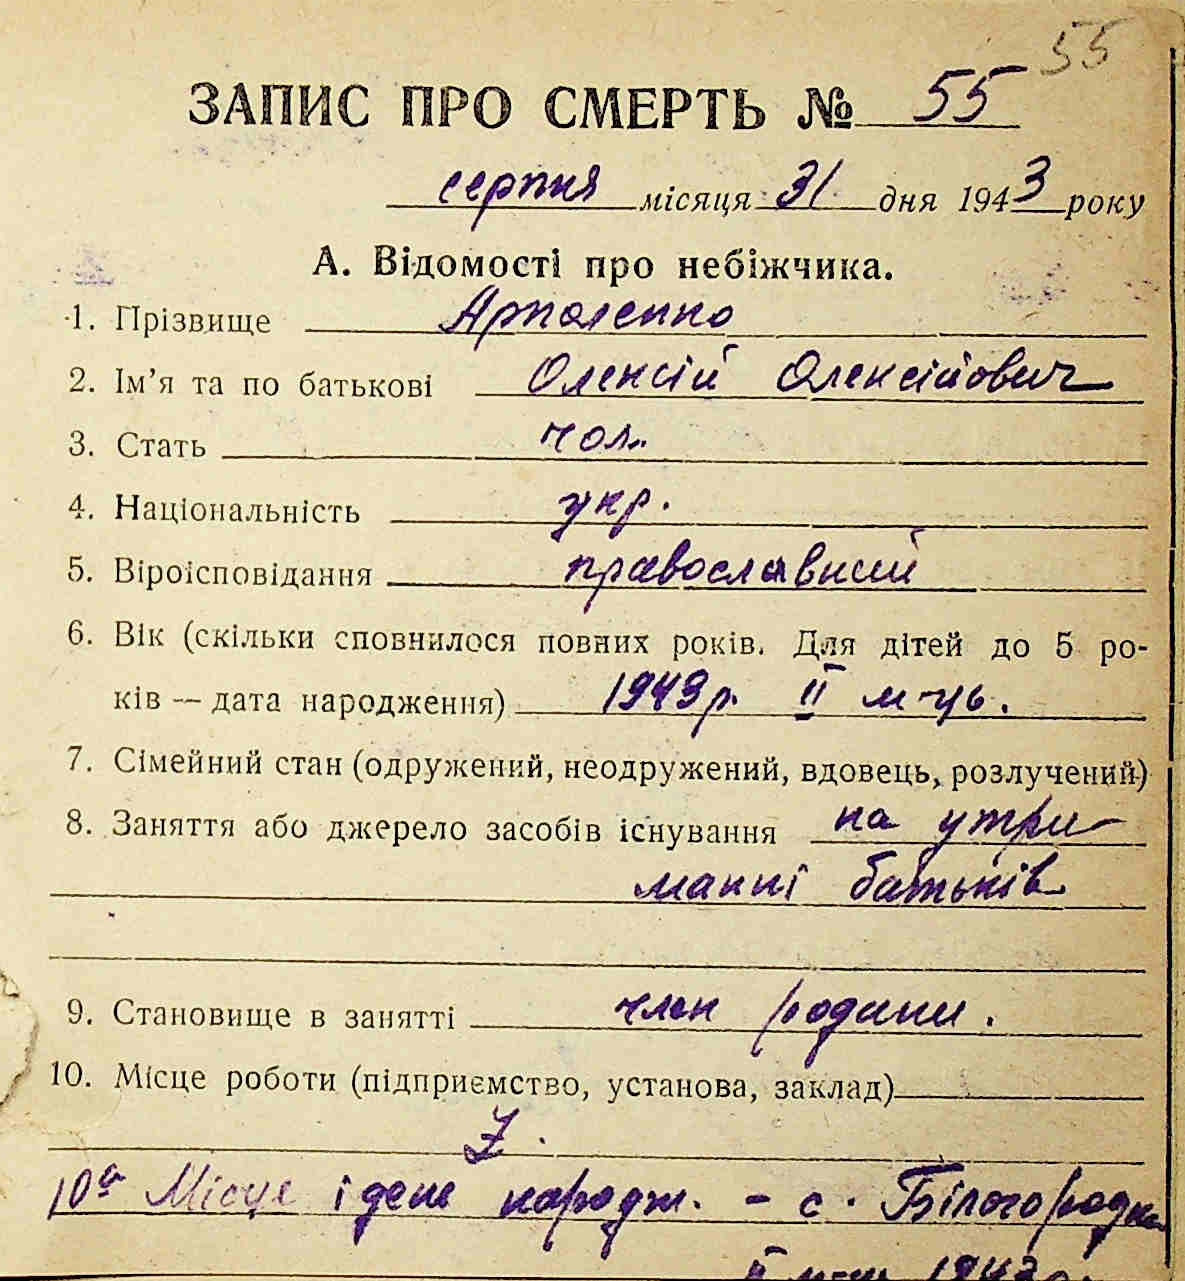 55
ЗАПИС ПРО СМЕРТЬ № 55
серпня місяця 31 дня 1943 року
А. Відомості про небіжчика.
1. Прізвище Ярмоленко
2. Ім’я та по батькові Олексій Олексійович
3. Стать чол.
4. Національність укр.
5. Віроісповідання православний
6. Вік (скільки сповнилося повних років. Для дітей до 5 ро-
ків — дата народження) 1943 р. II м-ць.
7. Сімейний стан (одружений, неодружений, вдовець, розлучений)
8. Заняття або джерело засобів існування на утри-
манні батьків
9. Становище в занятті член родини.
10. Місце роботи (підприємство, установа, заклад)
10а Місце і день народж. - с. Білогородка
II 1943